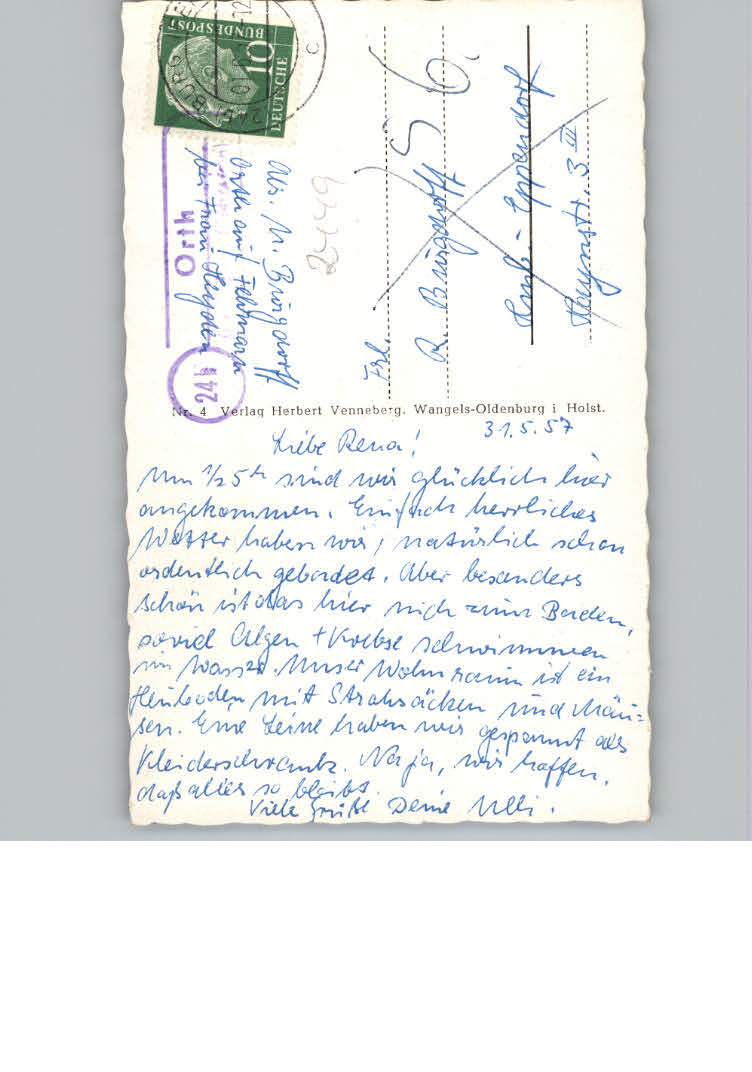 Liebe Rena!
31.5.57
Um 1/2 5h sind wir glücklich hier
angekommen. Einfach herrliches
Wetter haben wir, natürlich schon
ordentlich gebadet. Aber besonders
schön ist das hier nich zum Baden,
soviel Algen + Krebse schwimmen
im Wasser. Unser Wohnraum ist ein
Heuboden mit Strohsäcken und Mäu=
sen. Eine Leine haben wir gespannt als
Kleiderschrank. Na ja, wir hoffen,
daß alles so bleibt.
Viele Grüße Deine Ulli.
Nr. 4 Verlag Herbert Venneberg, Wangels-Oldenburg i Holst.
Abs. U. Burgdorff
Orth auf Fehmarn
bei Frau Heyden
24b
Orth
DEUTSCHE
BUNDESPOST
10
Frl.
R. Burgdorff
Hmb. - Eppendorf
Haynstr. 3 III